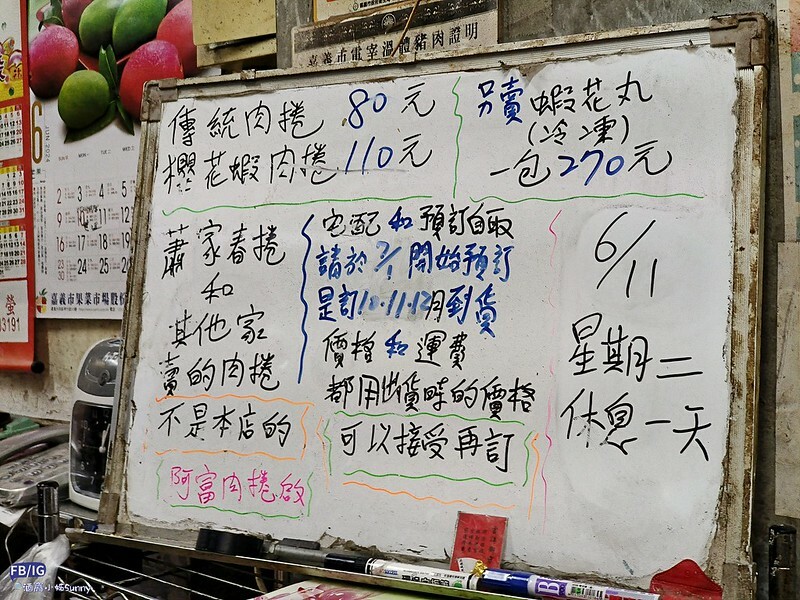 嘉義市電宰溫體豬肉證明
傳統肉捲 80元
櫻花蝦肉捲 110元
另賣 蝦花丸
(冷凍)
一包270元
蕭家春捲
和
其他家
賣的肉捲
不是本店的
阿富肉捲啟
宅配和預訂自取
請於7/1開始預訂
是訂10.11.12月到貨
價格和運費
都用出貨時的價格
可以接受再訂
6/11
星期二
休息一天
6
JUN
2024
1
2 3 4 5
9 10 11 12
16 17 18 19
23 24 25 26
30
嘉義市果菜市場股份
3191
FB/IG